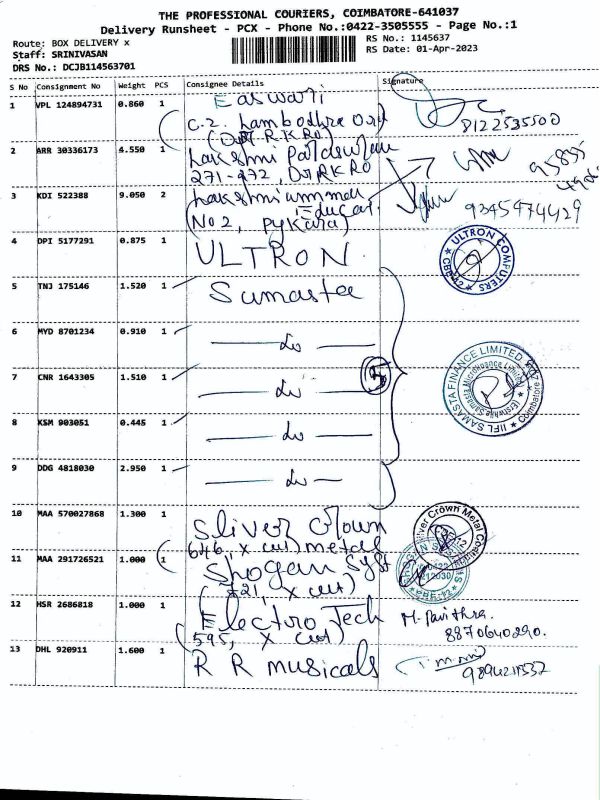 THE PROFESSIONAL COURIERS, COIMBATORE-641037
Delivery Runsheet - PCX - Phone No.:0422-3505555 - Page No.:1
Route: BOX DELIVERY x
RS No.: 1145637
Staff: SRINIVASAN
RS Date: 01-Apr-2023
DRS No.: DCJB114563701
S No Consignment No Weight PCS Consignee Details Signature
1 VPL 124894731 0.860 1 Easwari
C.2. Lambodhra
8122535500
2 ARR 30336173 4.550 1 Lakshmi
271-272, D R.K.RO
3 KDI 522388 9.050 2 Lakshmiammal
Educat.
(No 2, Pykara)
9345474429
4 DPI 5177291 0.875 1 ULTRON
ULTRON COMPUTERS
CBE-42
5 TNJ 175146 1.520 1 Samasta
6 MYD 8701234 0.910 1 — do —
7 CNR 1643305 1.510 1 — do —
5
IIFL SAMASTA FINANCE LIMITED
(Erstwhile Samasta Microfinance Limited)
Coimbatore
8 KSM 903051 0.445 1 — do —
9 DDG 4818030 2.950 1 — do —
10 MAA 570027868 1.300 1 Sliver Crown
646, x cut) metals
Silver Crown Metal
11 MAA 291726521 1.000 1 Shogan Syst
721, x cut)
12 HSR 2686818 1.000 1 Electro Tech
595, x cut)
8870640290.
13 DHL 920911 1.600 1 R R musicals